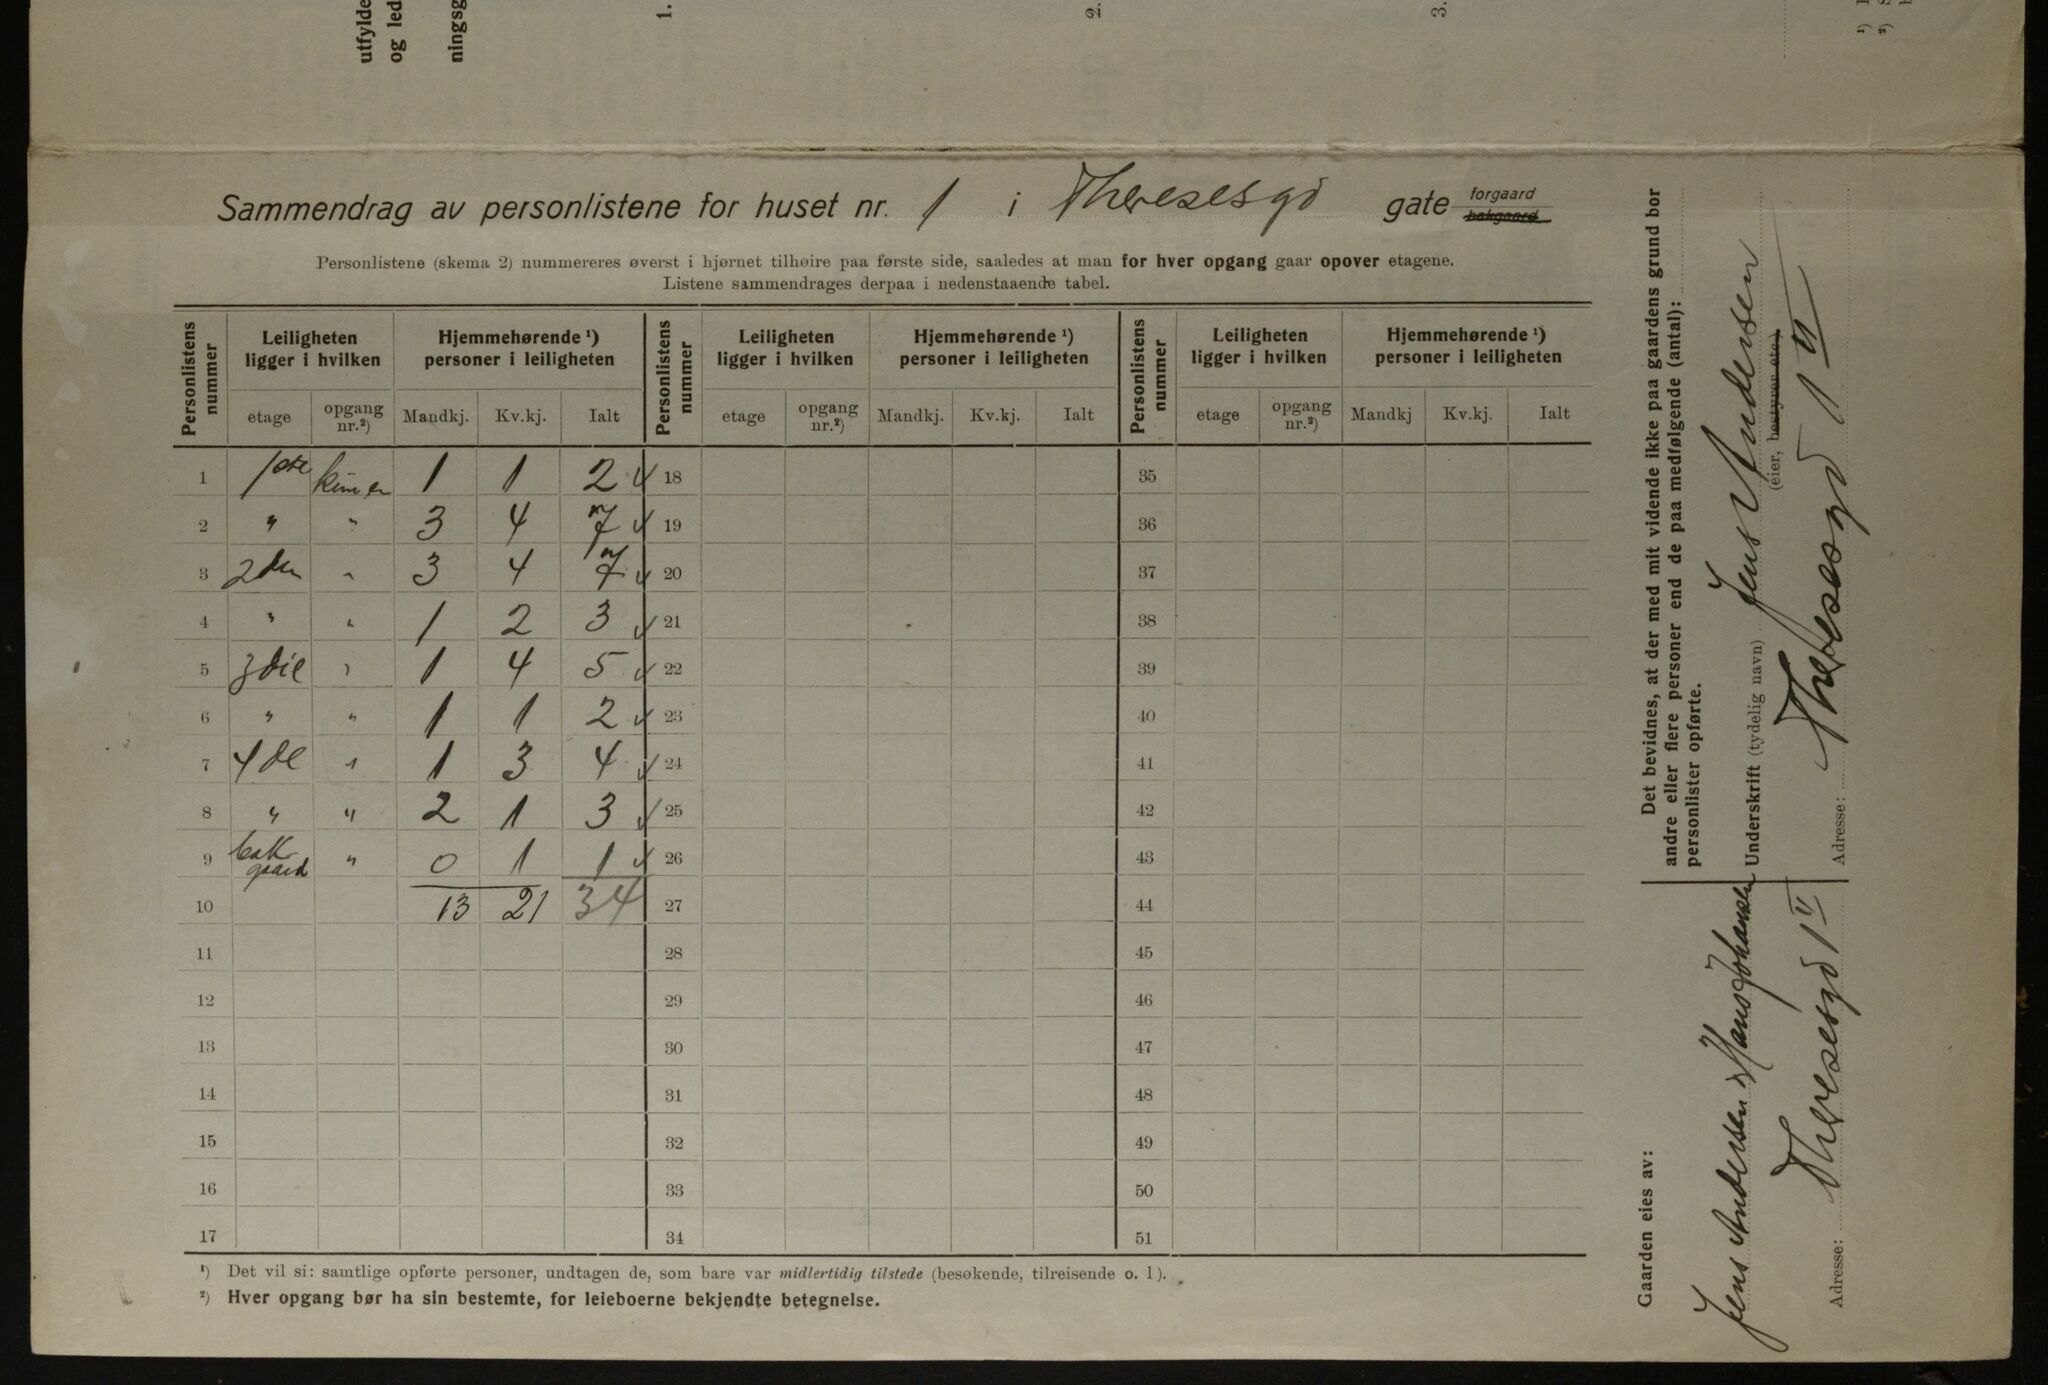 utfylde
og led
ningsg
1.
2.
3.
¹)
²)
Sammendrag av personlistene for huset nr. 1 i Theresesgd gate forgaard bakgaard
Personlistene (skema 2) nummereres øverst i hjørnet tilhøire paa første side, saaledes at man for hver opgang gaar opover etagene.
Listene sammendrages derpaa i nedenstaaende tabel.
Personlistens nummer | Leiligheten ligger i hvilken | Hjemmehørende ¹) personer i leiligheten | Personlistens nummer | Leiligheten ligger i hvilken | Hjemmehørende ¹) personer i leiligheten | Personlistens nummer | Leiligheten ligger i hvilken | Hjemmehørende ¹) personer i leiligheten
etage | opgang nr.²) | Mandkj. | Kv.kj. | Ialt | etage | opgang nr.²) | Mandkj. | Kv.kj. | Ialt | etage | opgang nr.²) | Mandkj | Kv.kj. | Ialt
1 | 1ste | | 1 | 1 | 2 | 18 | 35
2 | " | " | 3 | 4 | 7 | 19 | 36
3 | 2den | " | 3 | 4 | 7 | 20 | 37
4 | " | " | 1 | 2 | 3 | 21 | 38
5 | 3die | " | 1 | 4 | 5 | 22 | 39
6 | " | " | 1 | 1 | 2 | 23 | 40
7 | 4de | " | 1 | 3 | 4 | 24 | 41
8 | " | " | 2 | 1 | 3 | 25 | 42
9 | bakgaard | " | 0 | 1 | 1 | 26 | 43
10 | 13 | 21 | 34 | 27 | 44
11 | 28 | 45
12 | 29 | 46
13 | 30 | 47
14 | 31 | 48
15 | 32 | 49
16 | 33 | 50
17 | 34 | 51
¹) Det vil si: samtlige opførte personer, undtagen de, som bare var midlertidig tilstede (besøkende, tilreisende o. l).
²) Hver opgang bør ha sin bestemte, for leieboerne bekjendte betegnelse.
Det bevidnes, at der med mit vidende ikke paa gaardens grund bor
andre eller flere personer end de paa medfølgende (antal):
personlister opførte.
Underskrift (tydelig navn) Jens Andersen
(eier, bestyrer etc.)
Adresse: Theresesgd 1 IV
Gaarden eies av:
Jens Andersen Hans Johansen
Adresse: Theresesgd 1 IV